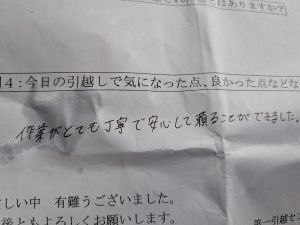 ことはありますか？
4：今日の引越しで気になった点、良かった点などな
作業がとても丁寧で安心して頼ることができました。
しい中　有難うございました。
後ともよろしくお願いします。
第一引越セン